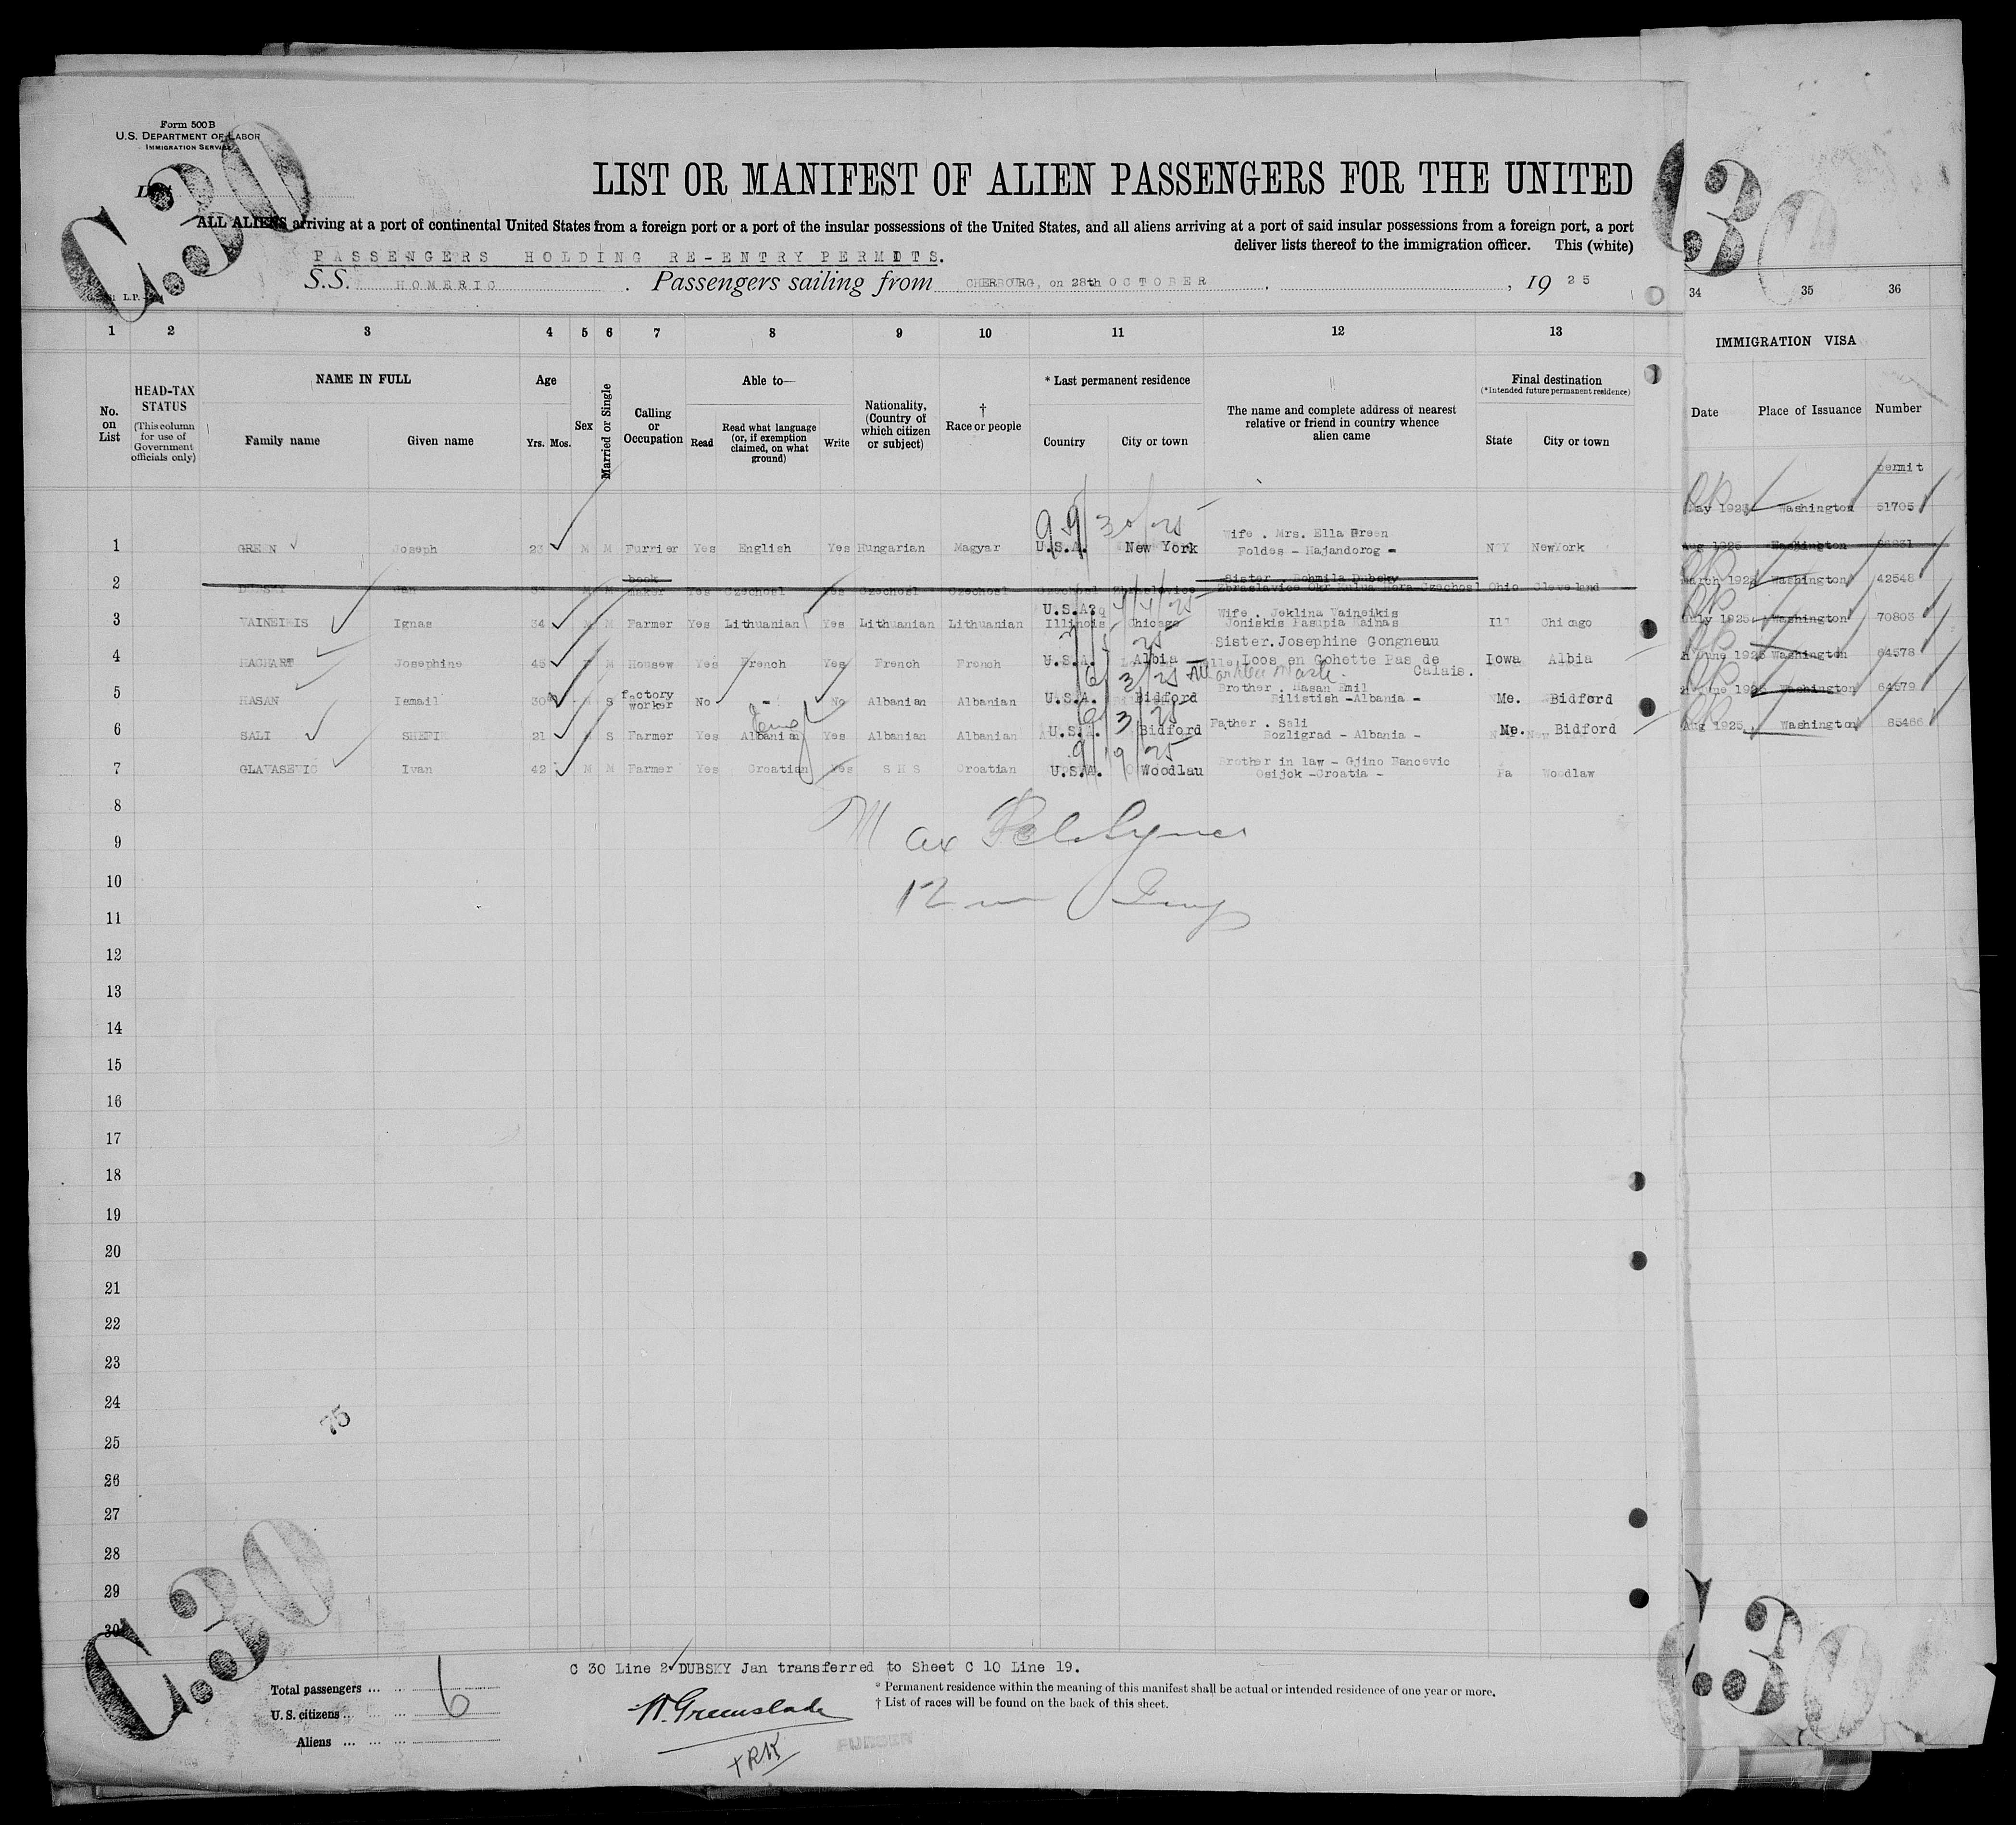 Form 500B
U.S. DEPARTMENT OF LABOR
IMMIGRATION SERVICE
C.30
LIST OR MANIFEST OF ALIEN PASSENGERS FOR THE UNITED
ALL ALIENS arriving at a port of continental United States from a foreign port or a port of the insular possessions of the United States, and all aliens arriving at a port of said insular possessions from a foreign port, a port
deliver lists thereof to the immigration officer. This (white)
PASSENGERS HOLDING RE-ENTRY PERMITS.
S.S. HOMERIC. Passengers sailing from CHERBOURG, on 28th OCTOBER, 1925
1 2 3 4 5 6 7 8 9 10 11 12 13 34 35 36
No. on List
HEAD-TAX STATUS
(This column for use of Government officials only)
NAME IN FULL
Family name Given name
Age
Yrs. Mos.
Sex
Married or Single
Calling or Occupation
Able to—
Read
Read what language (or, if exemption claimed, on what ground)
Write
Nationality, (Country of which citizen or subject)
† Race or people
* Last permanent residence
Country City or town
The name and complete address of nearest relative or friend in country whence alien came
Final destination
(*Intended future permanent residence)
State City or town
IMMIGRATION VISA
Date Place of Issuance Number
permit
May 1925 Washington 51705
1 GREEN Joseph 23 M M Furrier Yes English Yes Hungarian Magyar U.S.A. New York Wife . Mrs. Ella Green
Foldes - Hajandorog - NY NewYork
Aug 1925 Washington
2 DUBSKY Jan M M book maker Yes Czechosl Yes Czechosl Czechosl Czechosl Zbraslavice Sister . Bohmila Dubsky
Zbraslavice Okr Kulua Hora Czechosl Ohio Cleveland
March 1925 Washington 42548
3 VAINEIKIS Ignas 34 M M Farmer Yes Lithuanian Yes Lithuanian Lithuanian U.S.A. Illinois Chicago Wife . Jeklina Vaineikis
Joniskis Pasupia Kainas Ill Chicago
July 1925 Washington 70803
4 HACHART Josephine 45 F M Housew Yes French Yes French French U.S.A. Albia Sister. Josephine Gongneuu
Loos en Gohette Pas de Calais. Iowa Albia
June 1925 Washington 64578
5 HASAN Ismail 30 M S factory worker No - No Albanian Albanian U.S.A. Bidford Brother . Hasan Emil
Bilistish -Albania - Me. Bidford
June 1925 Washington 64579
6 SALI SHEFIK 21 M S Farmer Yes Albanian Yes Albanian Albanian U.S.A. Bidford Father . Sali
Bozligrad - Albania - Me. Bidford
Aug 1925 Washington 85466
7 GLAVASEVIC Ivan 42 M M Farmer Yes Croatian Yes S H S Croatian U.S.A. Woodlau Brother in law - Gjino Bancevic
Osijok -Croatia - Pa Woodlaw
8
Max
9
10
12
11
12
13
14
15
16
17
18
19
20
21
22
23
24
75
25
26
27
28
29
30
C.30
C 30 Line 2 DUBSKY Jan transferred to Sheet C 10 Line 19.
Total passengers ... ... 6
U.S. citizens ... ... ...
Aliens ... ... ...
* Permanent residence within the meaning of this manifest shall be actual or intended residence of one year or more.
† List of races will be found on the back of this sheet.
W. Greenslade